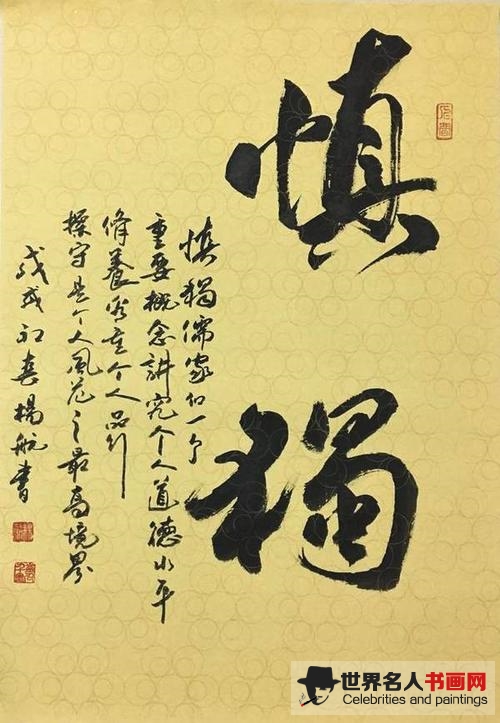 慎
獨
慎獨儒家的一个
重要概念講究个人道德水平
修養看重个人品行
操守是个人風范之最高境界
戊戌初春楊航書
世界名人书画网
Celebrities and paintings